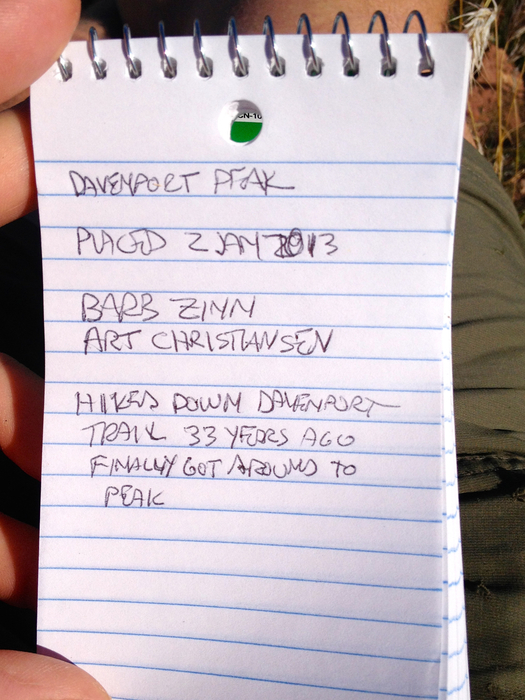 CN-10
DAVENPORT PEAK
PLACED 2 JAN 2013
BARB ZINN
ART CHRISTIANSEN
HIKED DOWN DAVENPORT
TRAIL 33 YEARS AGO
FINALLY GOT AROUND TO
PEAK